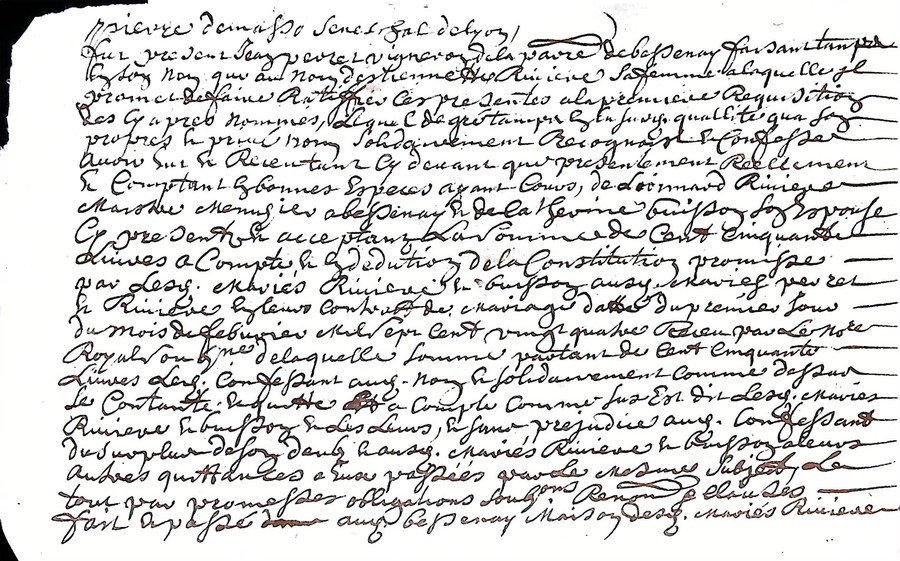 pierre demasso seneschal delyon,
fut present Jean perret vigneron dela parre debessenay faisant tanpr
En son Non que au Nom destiennette Riviere Sa femme alaquelle Jl
promet defaire Ratiffier Ces presentes ala premiere Requisition
des Cy apres Nommes, Lequel degre tanpr En la susq. quallité qua son
propres et privé nom Solidairement Recognait et Confesse
avoir Eut et Receu tant Cy devant que presentement Reellement
et Comptant En bonnes Especes ayant Cours, de Leonnard Riviere
Maistre Menusier abessenay et de Catherine buisson son Espouse
Cy present et acceptant La Somme de Cent Cinquante
Livres a Compte et En dedution dela Constitution promise
par Lesq. Mariés Riviere et buisson ausq. Mariés perret
et Riviere En leurs Contract de Mariage datte du premier Jour
du Mois de febvrier Mil Sept Cent vingt quatre Receu par Le Nore
Royal soubne delaquelle Somme partant de Cent Cinquante
Livres Lesq. Confessant auq. Nom et solidairement Comme dessus
Se Contante et quitte a Compte Comme sus Est dit Lesq. Mariés
Riviere et buisson et Les Leurs, et sans prejudice auq. Confessant
du surplus de son deub et ausq. Mariés Riviere et buisson aleurs
autres quittances a Eux passées par Le Mesme Subject, Le
tout par promesses obligations soubons Renon et Clauses
fait et passé auq. bessenay Maison desq. Mariés Riviere